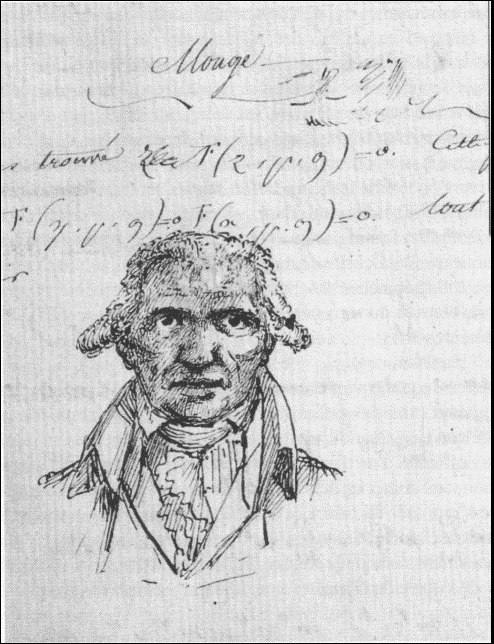 Monge
trouvé F(z, p, q)=0. Cette
F(y, p, q)=0 F(x, p, q)=0. tout